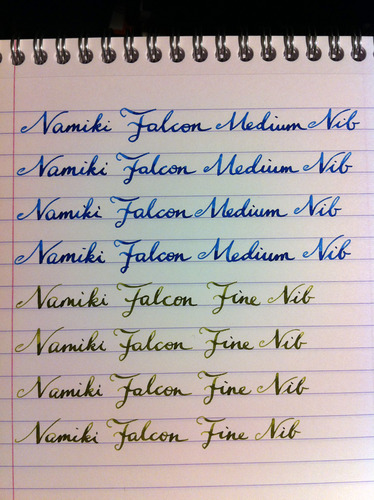 Namiki Falcon Medium Nib
Namiki Falcon Medium Nib
Namiki Falcon Medium Nib
Namiki Falcon Medium Nib
Namiki Falcon Fine Nib
Namiki Falcon Fine Nib
Namiki Falcon Fine Nib
Namiki Falcon Fine Nib